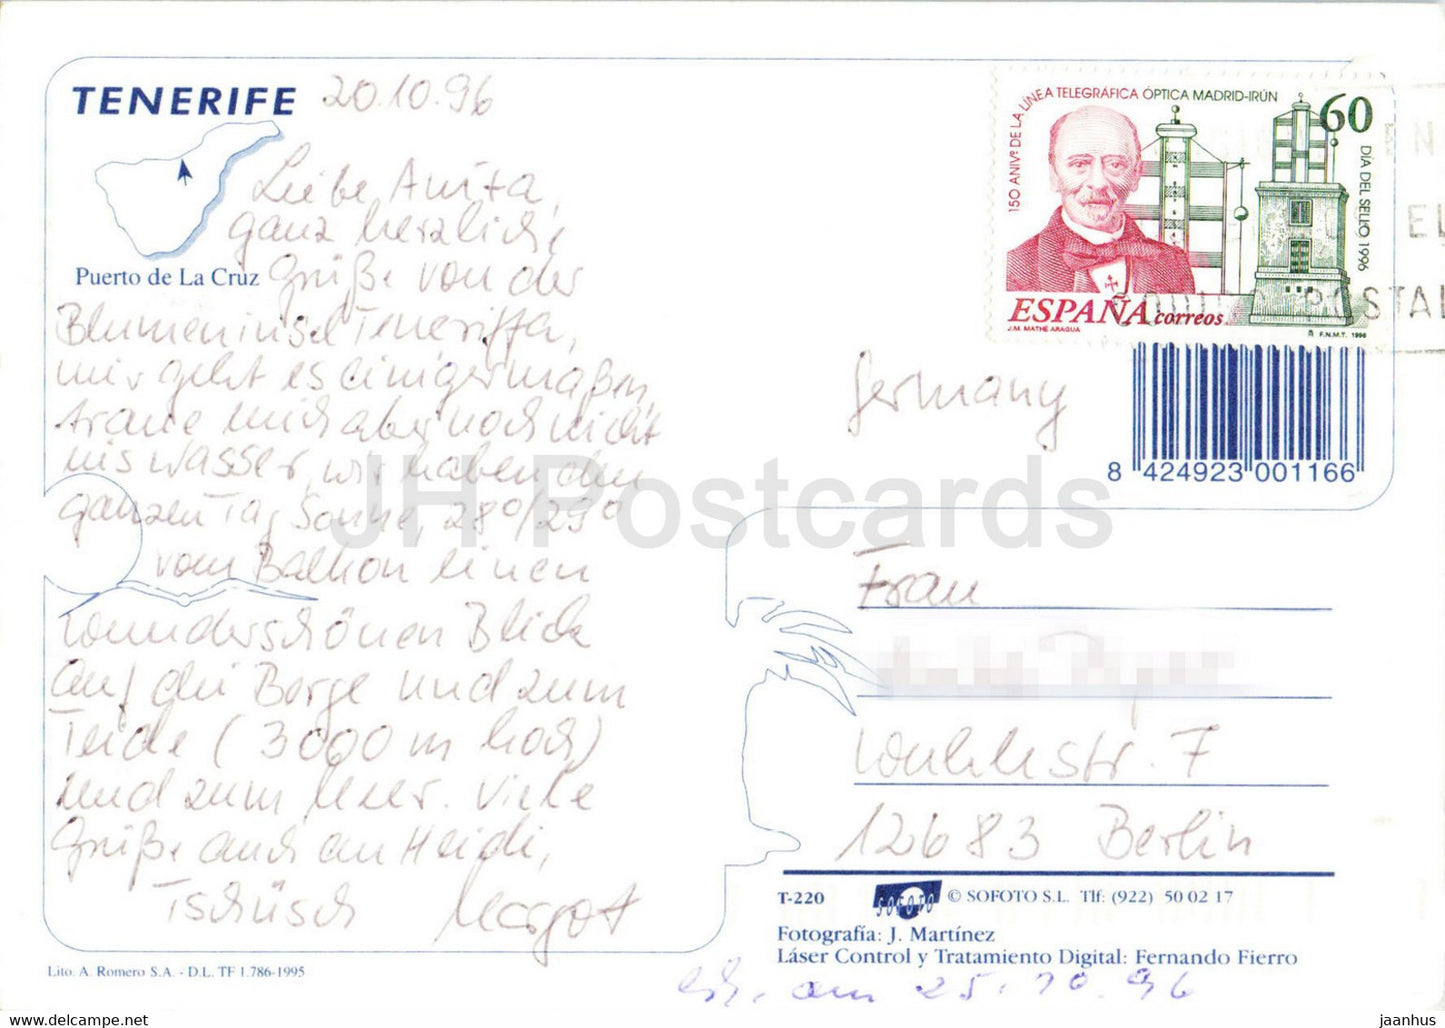 TENERIFE
20.10.96
Puerto de La Cruz
Liebe Anita,
ganz herzliche
Grüße von der
Blumeninsel Teneriffa,
mir geht es einigermaßen,
traue mich aber noch nicht
ins Wasser, wir haben den
ganzen Tag Sonne, 28º/29º
vom Balkon einen
wunderschönen Blick
auf die Berge und zum
Teide (3000 m hoch)
und zum Meer. Viele
Grüße auch an Heidi,
Tschüsch Margot
Lito. A. Romero S.A. - D.L. TF 1.786-1995
150 ANIVº DE LA LÍNEA TELEGRÁFICA ÓPTICA MADRID-IRÚN
60
DÍA DEL SELLO 1996
ESPAÑA correos
J.M. MATHÉ ARAGUA
F.N.M.T. 1996
POSTAL
Germany
8 424923 001166
JH Postcards
Frau
str. 7
12683 Berlin
T-220 SOFOTO © SOFOTO S.L. Tlf: (922) 50 02 17
Fotografía: J. Martínez
Láser Control y Tratamiento Digital: Fernando Fierro
am 25.10.96
jaanhus www.delcampe.net